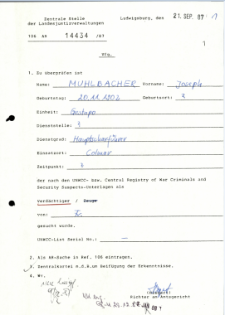 Zentrale Stelle
der Landesjustizverwaltungen
Ludwigsburg, den 21. SEP. 87
14434 /87
1
Vfg.
1. Zu überprüfen ist
Name: MUHLBACHER Vorname: Joseph
Geburtstag: 20.11.1902 Geburtsort: ?
Einheit: Gestapo
Dienststelle: ?
Dienstgrad: Hauptscharführer
Einsatzort: Colmar
Zeitpunkt: ?
der nach den UNWCC- bzw. Central Registry of War Criminals and
Security Suspects-Unterlagen als
Verdächtiger / Zeuge
von:
gesucht wurde.
UNWCC-List Serial No.: —
2. Als AR-Sache in Ref. 108 eintragen.
3. Zentralkartei m.d.B.um Beifügung der Erkenntnisse.
4. Wv.
Richter am Amtsgericht